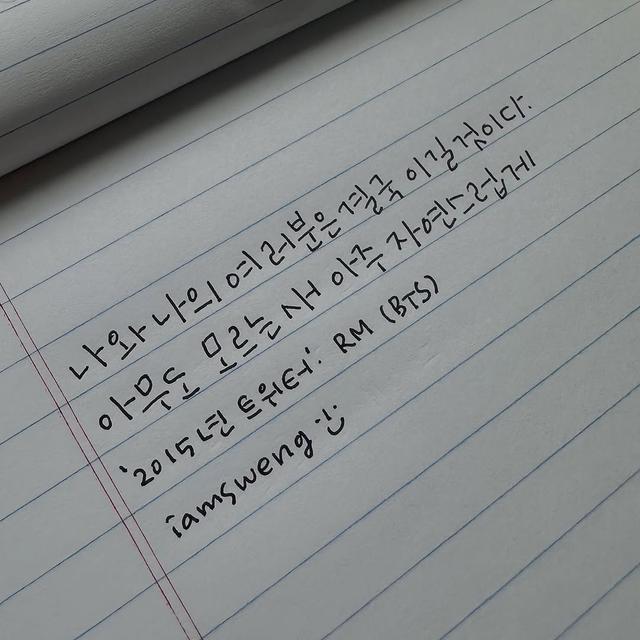 나와 나의 여러분은 결국 이길 것이다.
아무도 모르는 새 아주 자연스럽게
'2015년 트위터'. RM (BTS)
iamsweng :)